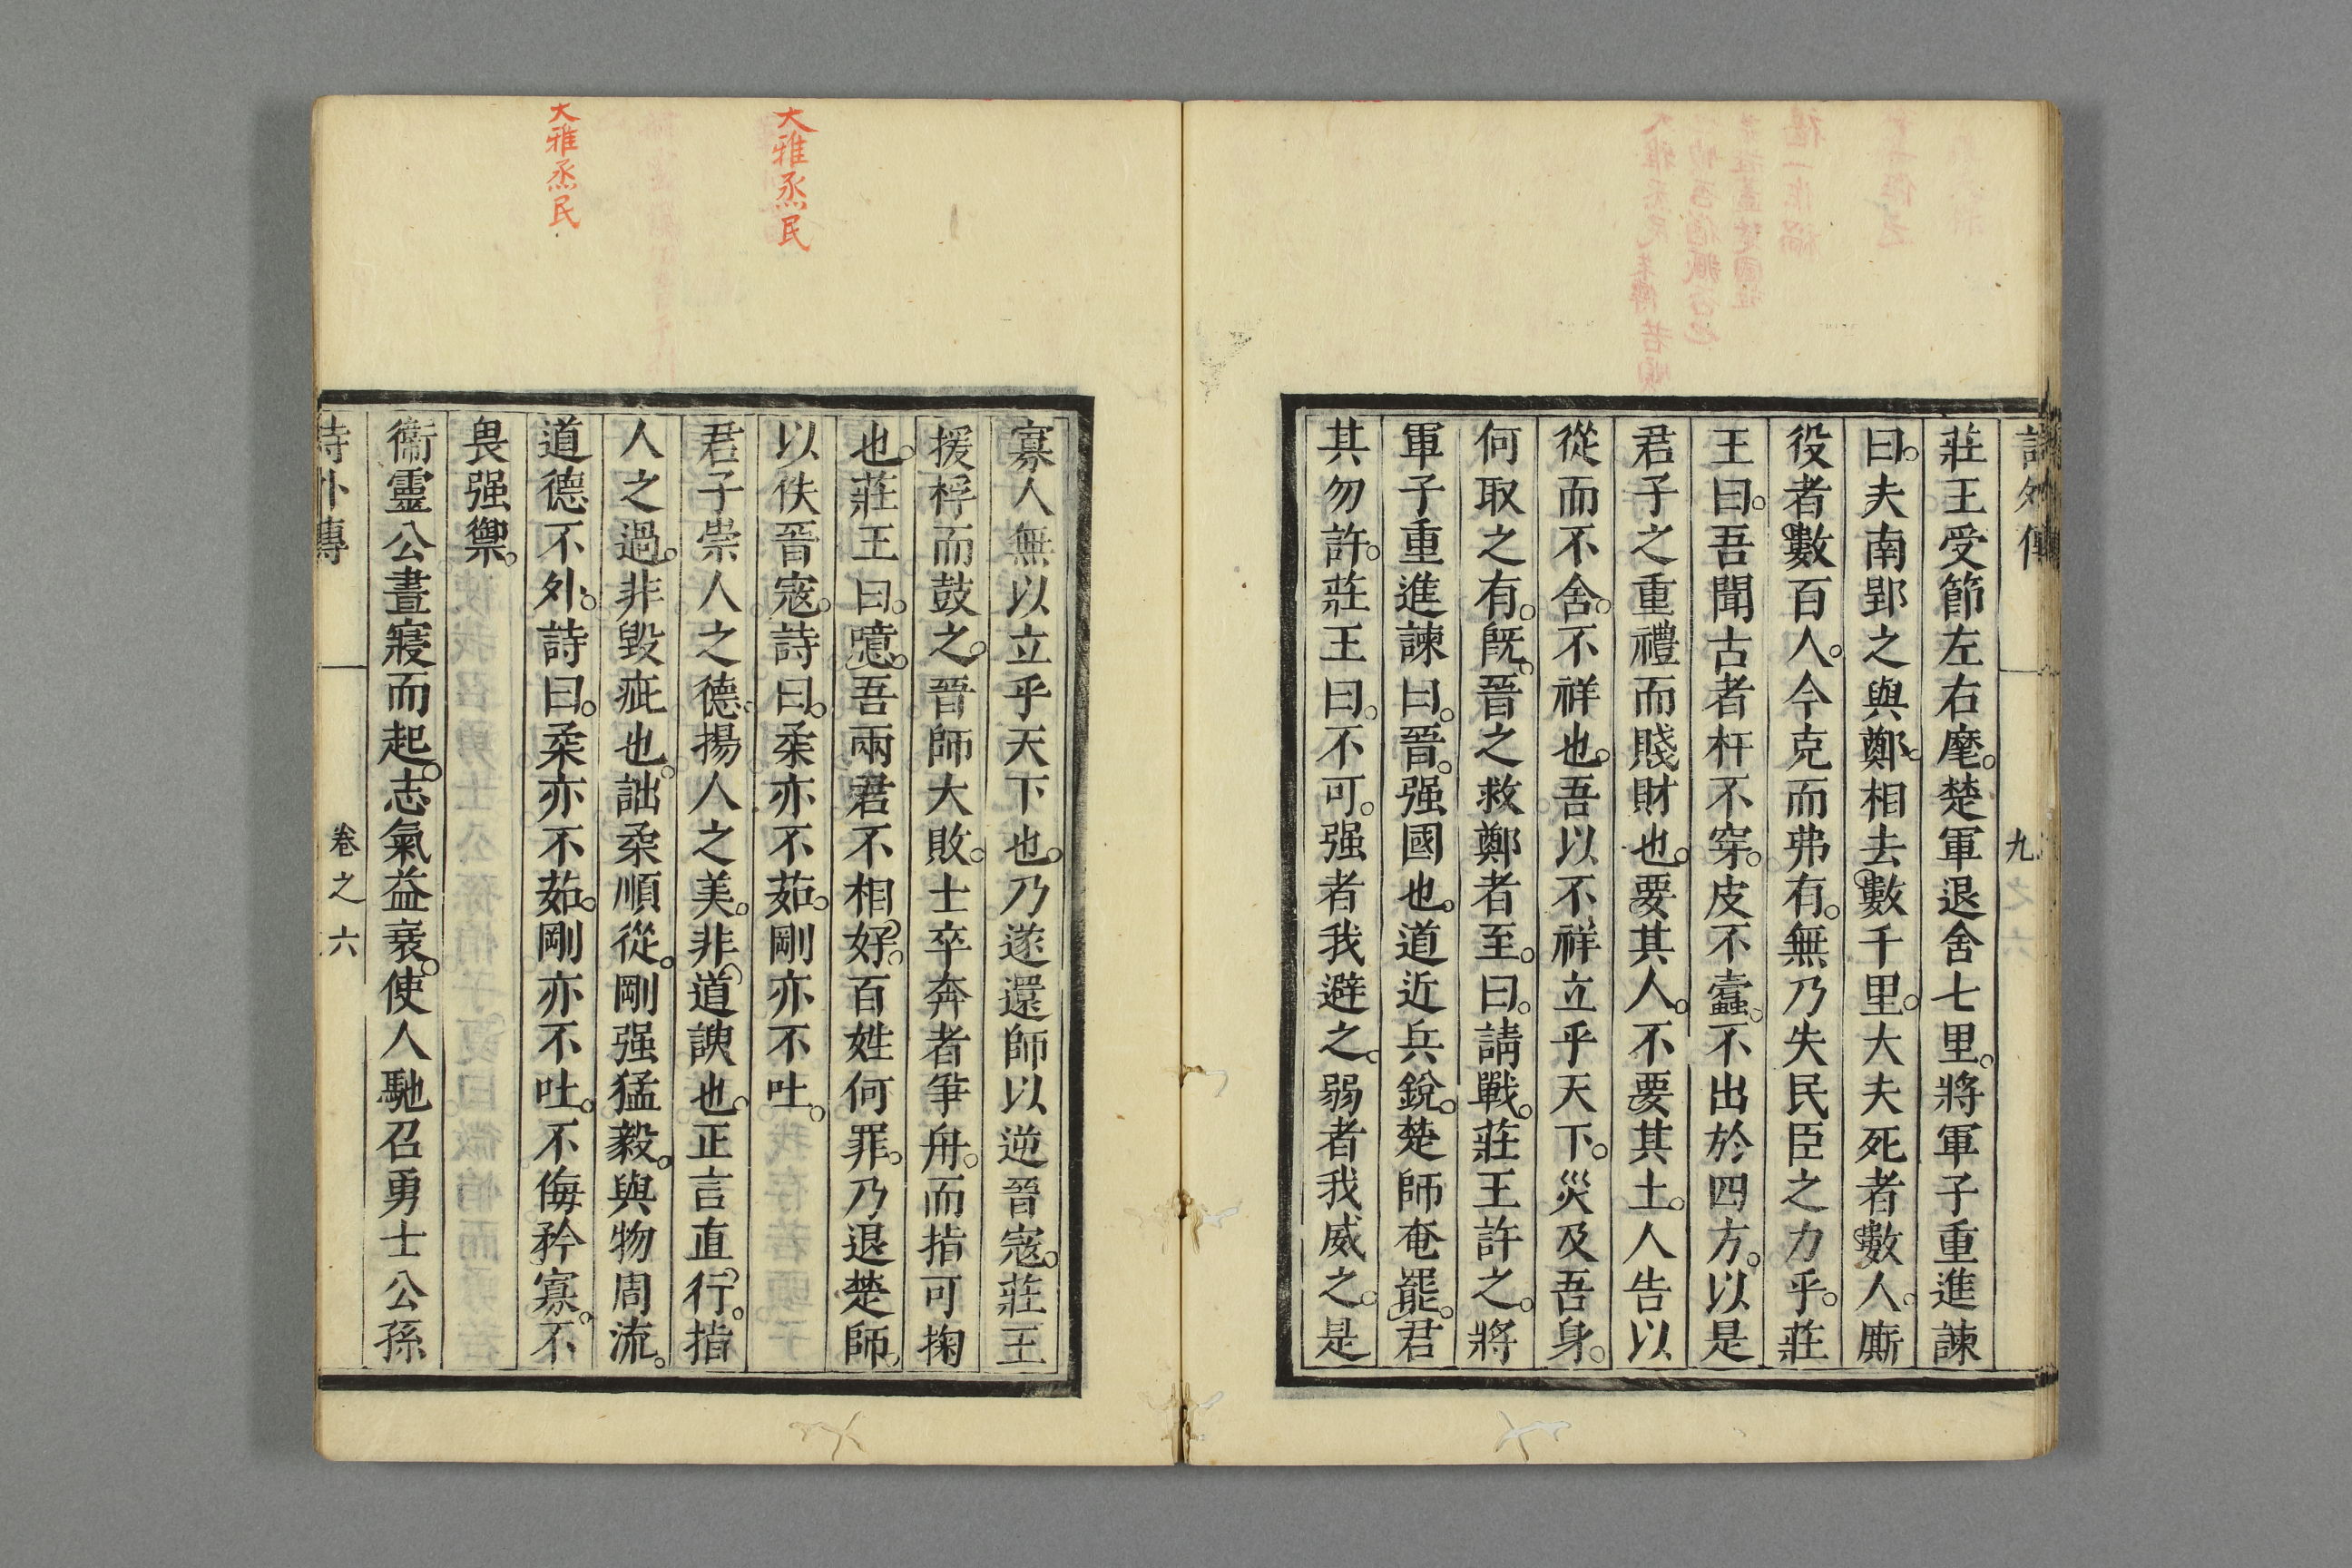 莊王受節左右麾。楚軍退舍七里。將軍子重進諫
曰。夫南郢之與鄭。相去數千里。大夫死者數人。廝
役者數百人。今克而弗有。無乃失民臣之力乎。莊
王曰。吾聞古者杅不穿。皮不蠹。不出於四方。以是
君子之重禮而賤財也。要其人。不要其土。人告以
從而不舍。不祥也。吾以不祥立乎天下。災及吾身。
何取之有。旣。晉之救鄭者至。曰。請戰。莊王許之。將
軍子重進諫曰。晉。强國也。道近兵銳。楚師奄罷。君
其勿許。莊王曰。不可。强者我避之。弱者我威之。是
九
寡人無以立乎天下也。乃遂還師以逆晉寇。莊王
援桴而鼓之。晉師大敗。士卒奔者爭舟。而指可掬
也。莊王曰。噫。吾兩君不相好。百姓何罪。乃退楚師。
以佚晉寇。詩曰。柔亦不茹。剛亦不吐。
君子崇人之德。揚人之美。非道諛也。正言直行。指
人之過。非毀疵也。詘柔順從。剛强猛毅。與物周流。
道德不外。詩曰。柔亦不茹。剛亦不吐。不侮矜寡。不
畏强禦。
衞靈公晝寢而起。志氣益衰。使人馳召勇士公孫
詩外傳
卷之六
大雅烝民
大雅烝民